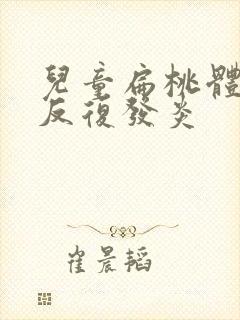 兒童扁桃體
反復發炎
崔晨韜